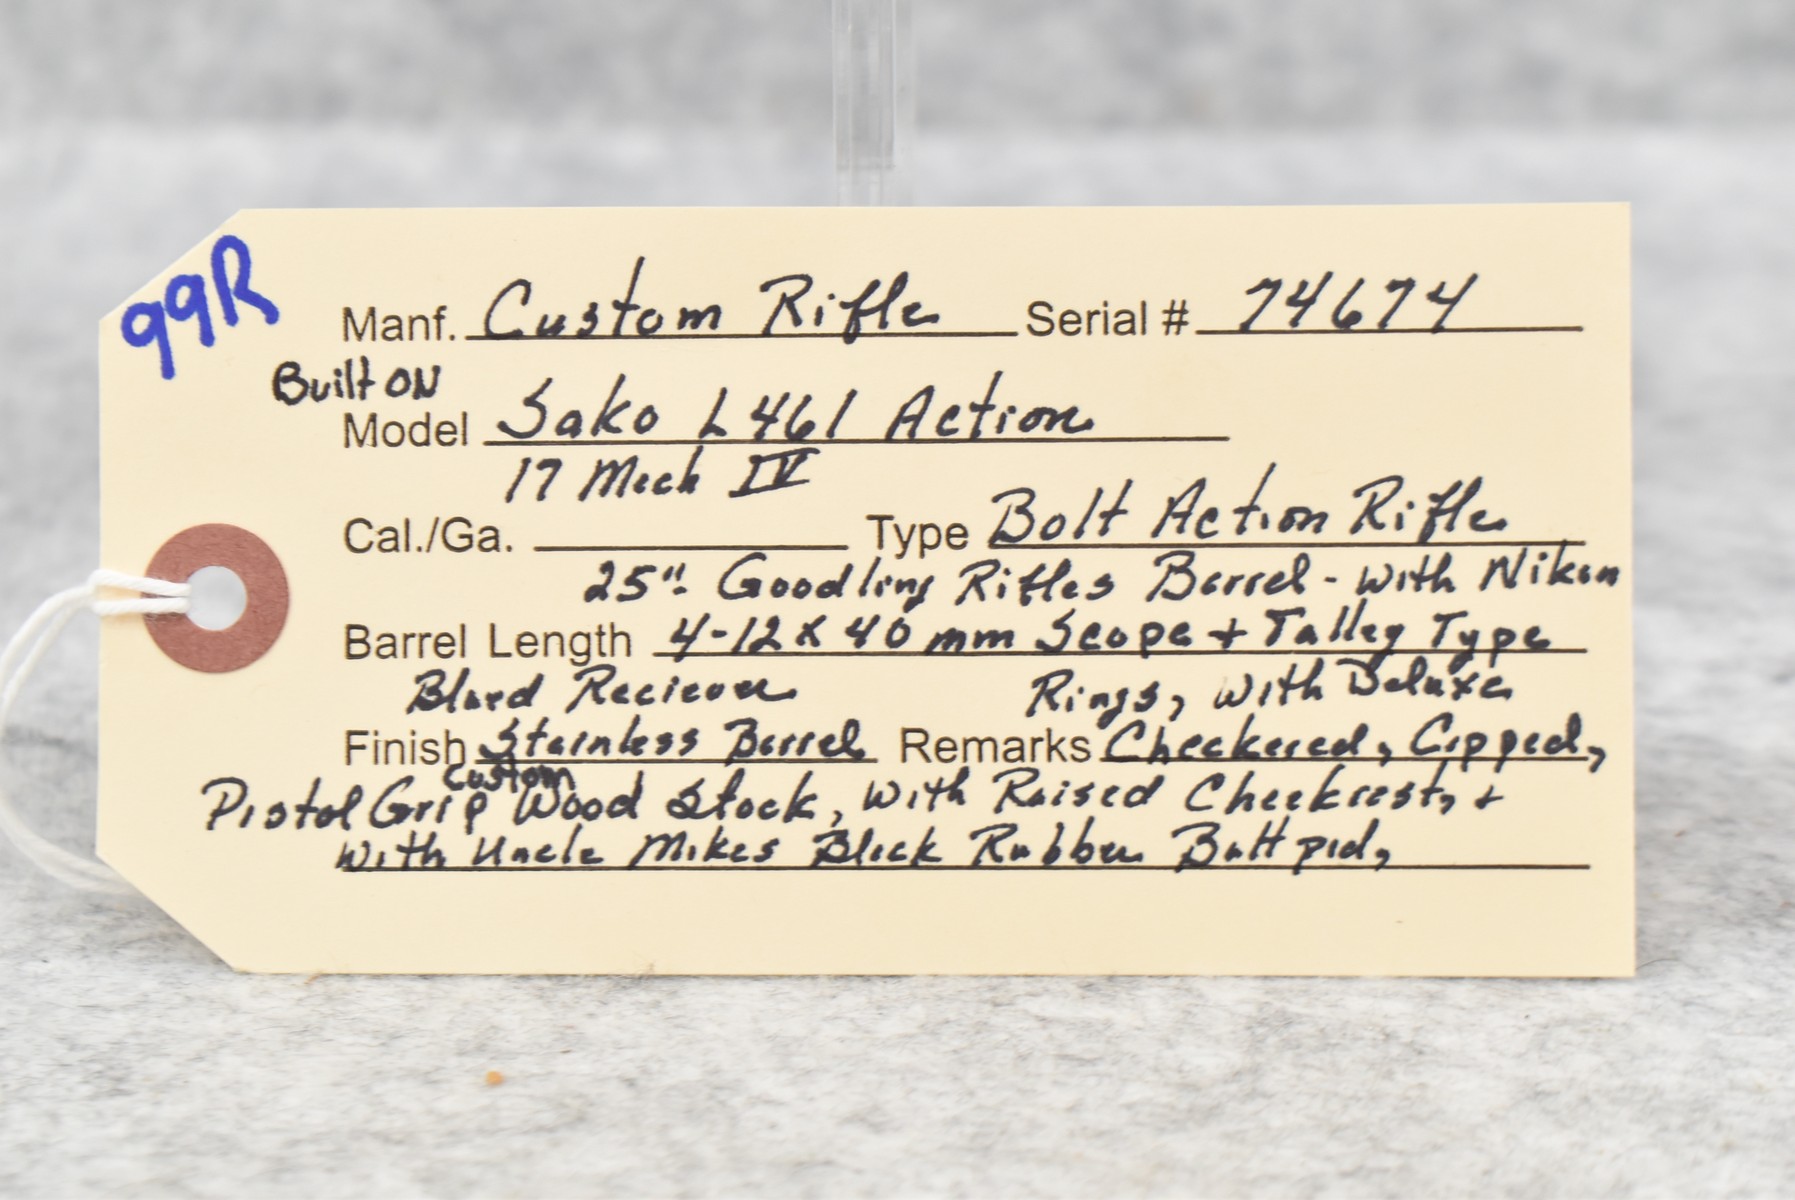 99R
Manf. Custom Rifle Serial # 74674
Built ON
Model Sako L461 Action
17 Mach IV
Cal./Ga. Type Bolt Action Rifle
25" Goodling Rifles Barrel - with Nikon
Barrel Length 4-12 x 40 mm Scope + Talley Type
Blued Reciever Rings, with Deluxe
Finish Stainless Barrel Remarks Checkered, Cipped,
Custom
Pistol Grip Wood Stock, with Raised Cheekrest, +
with Uncle Mikes Black Rubber Butt pad,